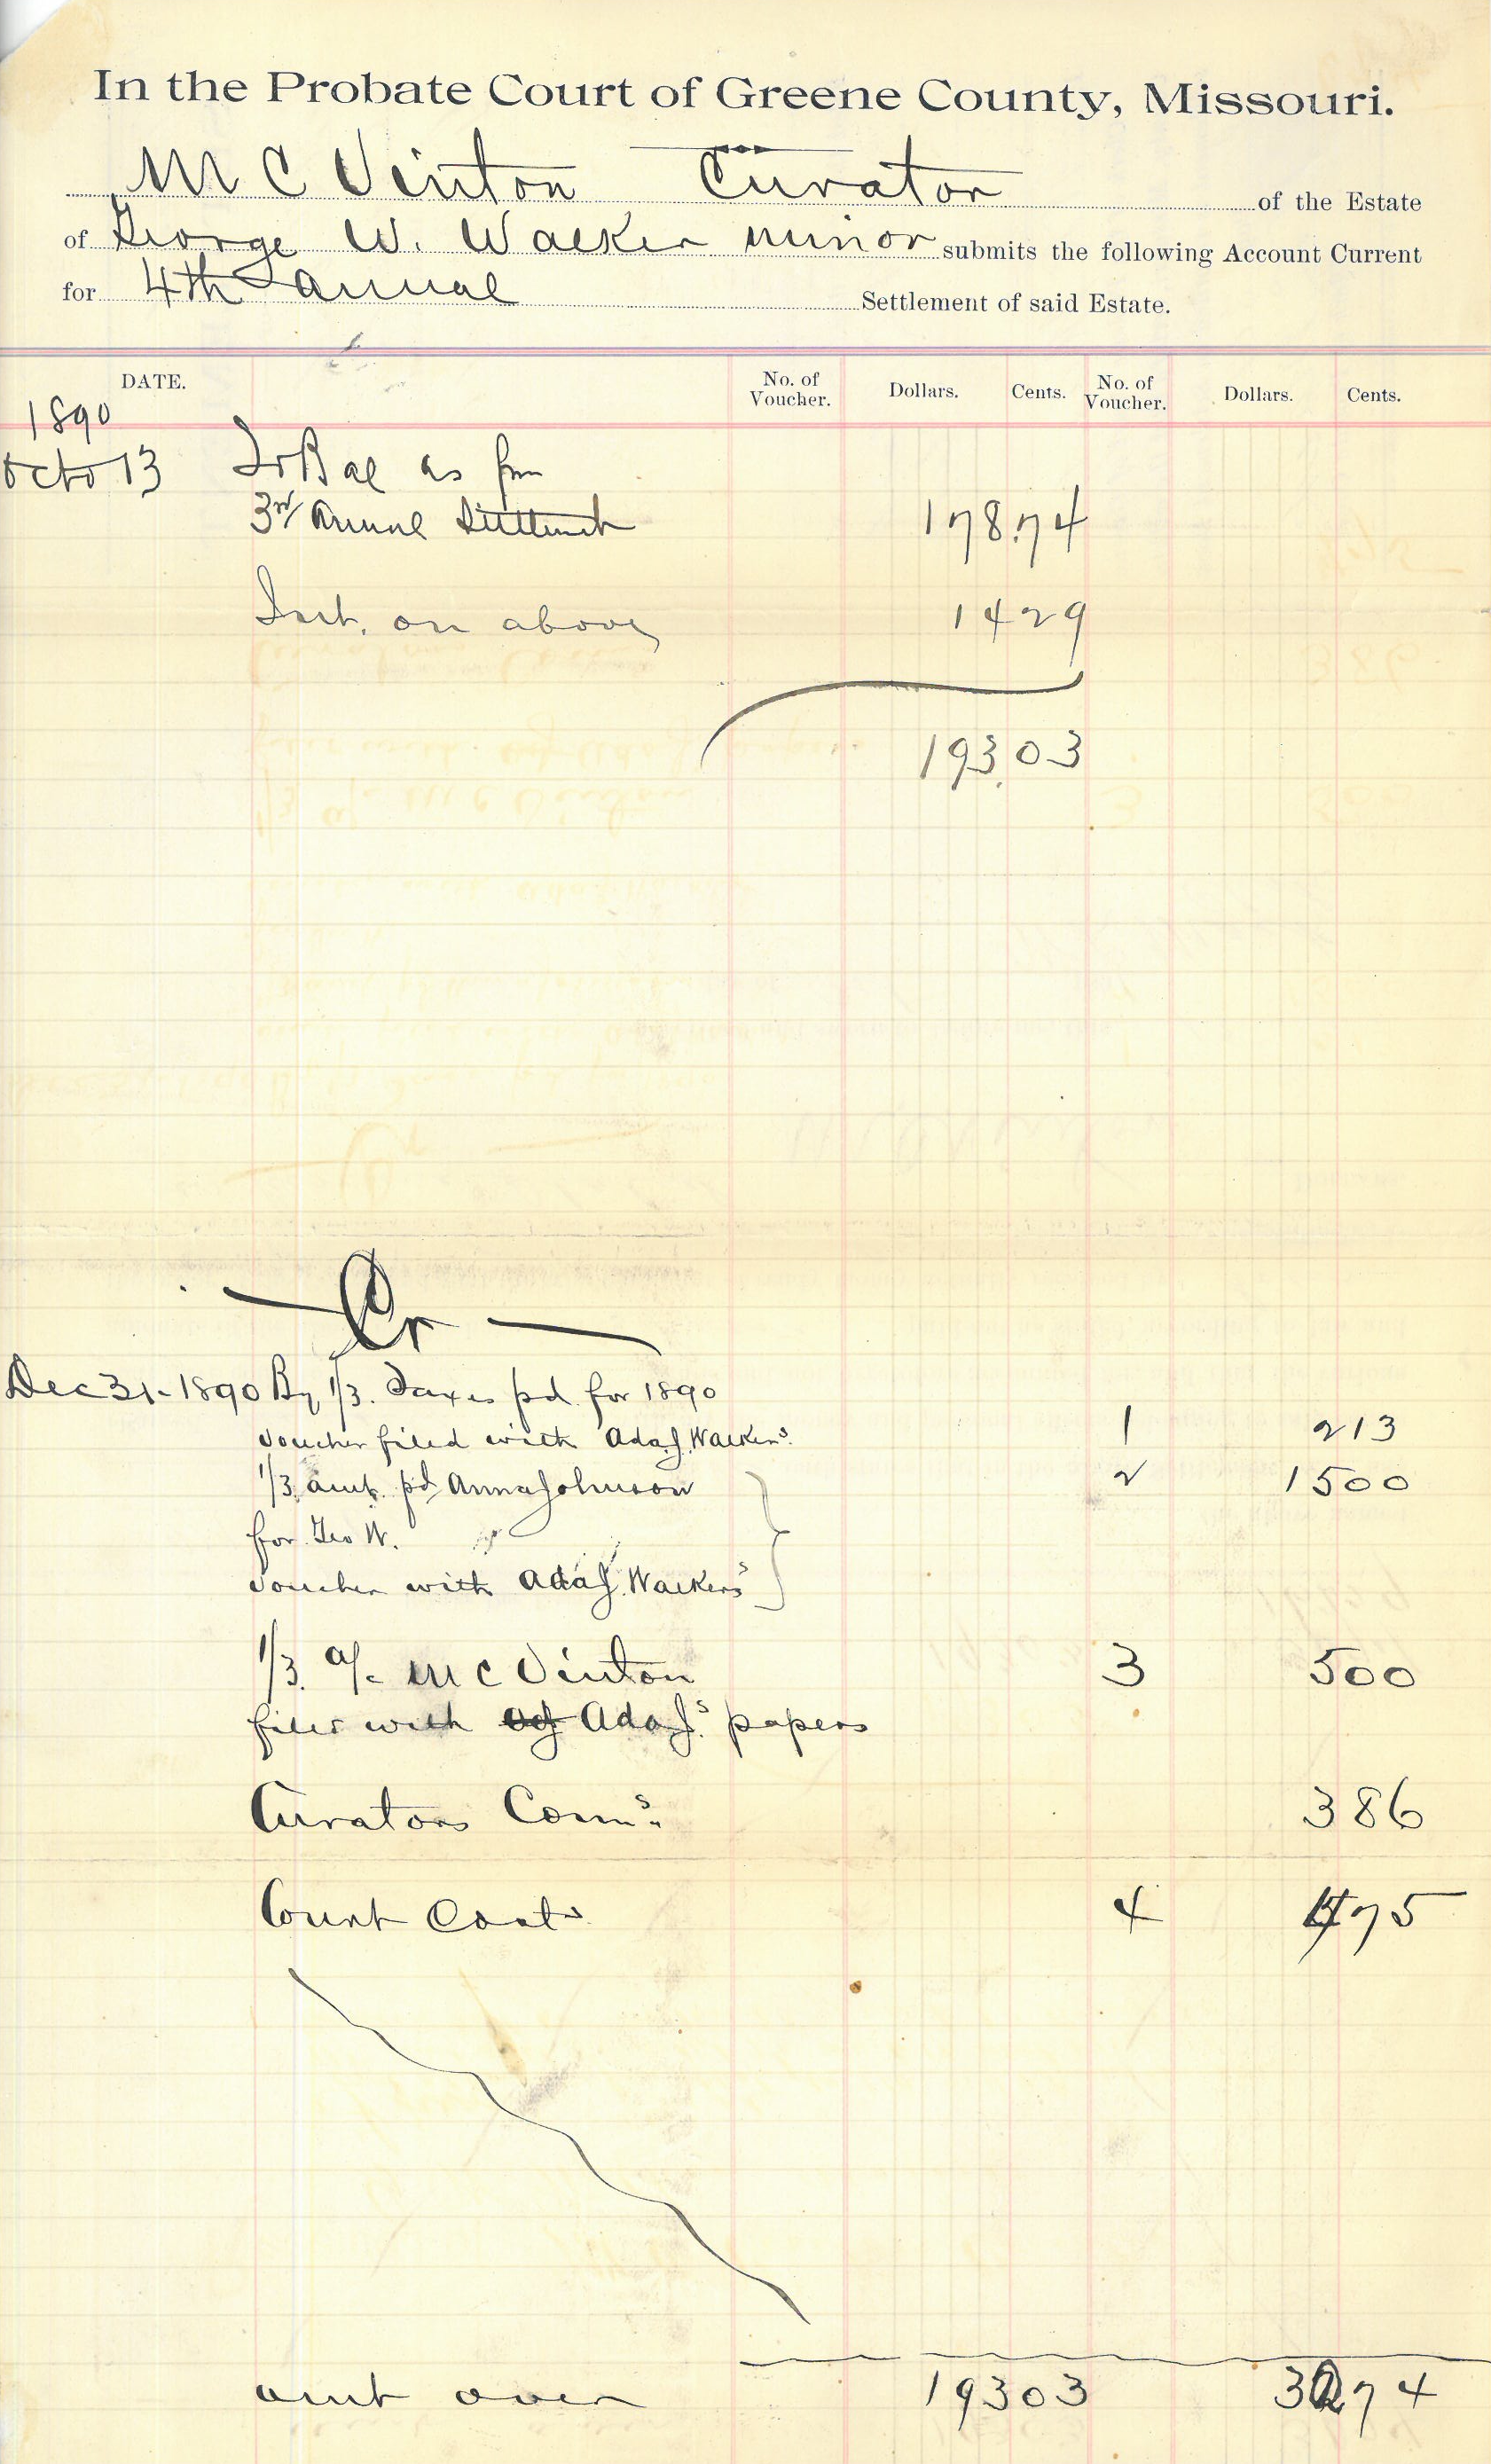 In the Probate Court of Greene County, Missouri.
M C Vinton Curator of the Estate
of George W. Walker minor submits the following Account Current
for 4th annual Settlement of said Estate.
DATE. No. of Voucher. Dollars. Cents. No. of Voucher. Dollars. Cents.
1890
Octo 13 To Bal as per
3rd Annual Settlement 178.74
Int. on above 14 29
193.03
Cr
Dec 31-1890 By 1/3. Taxes pd. for 1890
Voucher filed with Ada J. Walkers. 1 2 13
1/3 amt. pd Anna Johnson 2 15 00
for Geo W.
Voucher with Ada J. Walkers
1/3. a/c M C Vinton 3 5 00
filed with Ada J.s papers
Curators Coms. 3 86
Court Costs 4 4 75
amt over 193 03 30 74